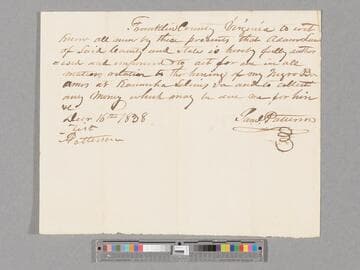 Franklin County Virginia to wit
know all men by these presents that Adam
of Said County and State is hereby fully autho
rised and impowered to act for me in all
matters relation to the hireing of my Negro
amos at Kanawha Salines Va and to collect
any money which may be due me for him
&c
Decr 16th 1838
Test
Patterson
Saml Patterson